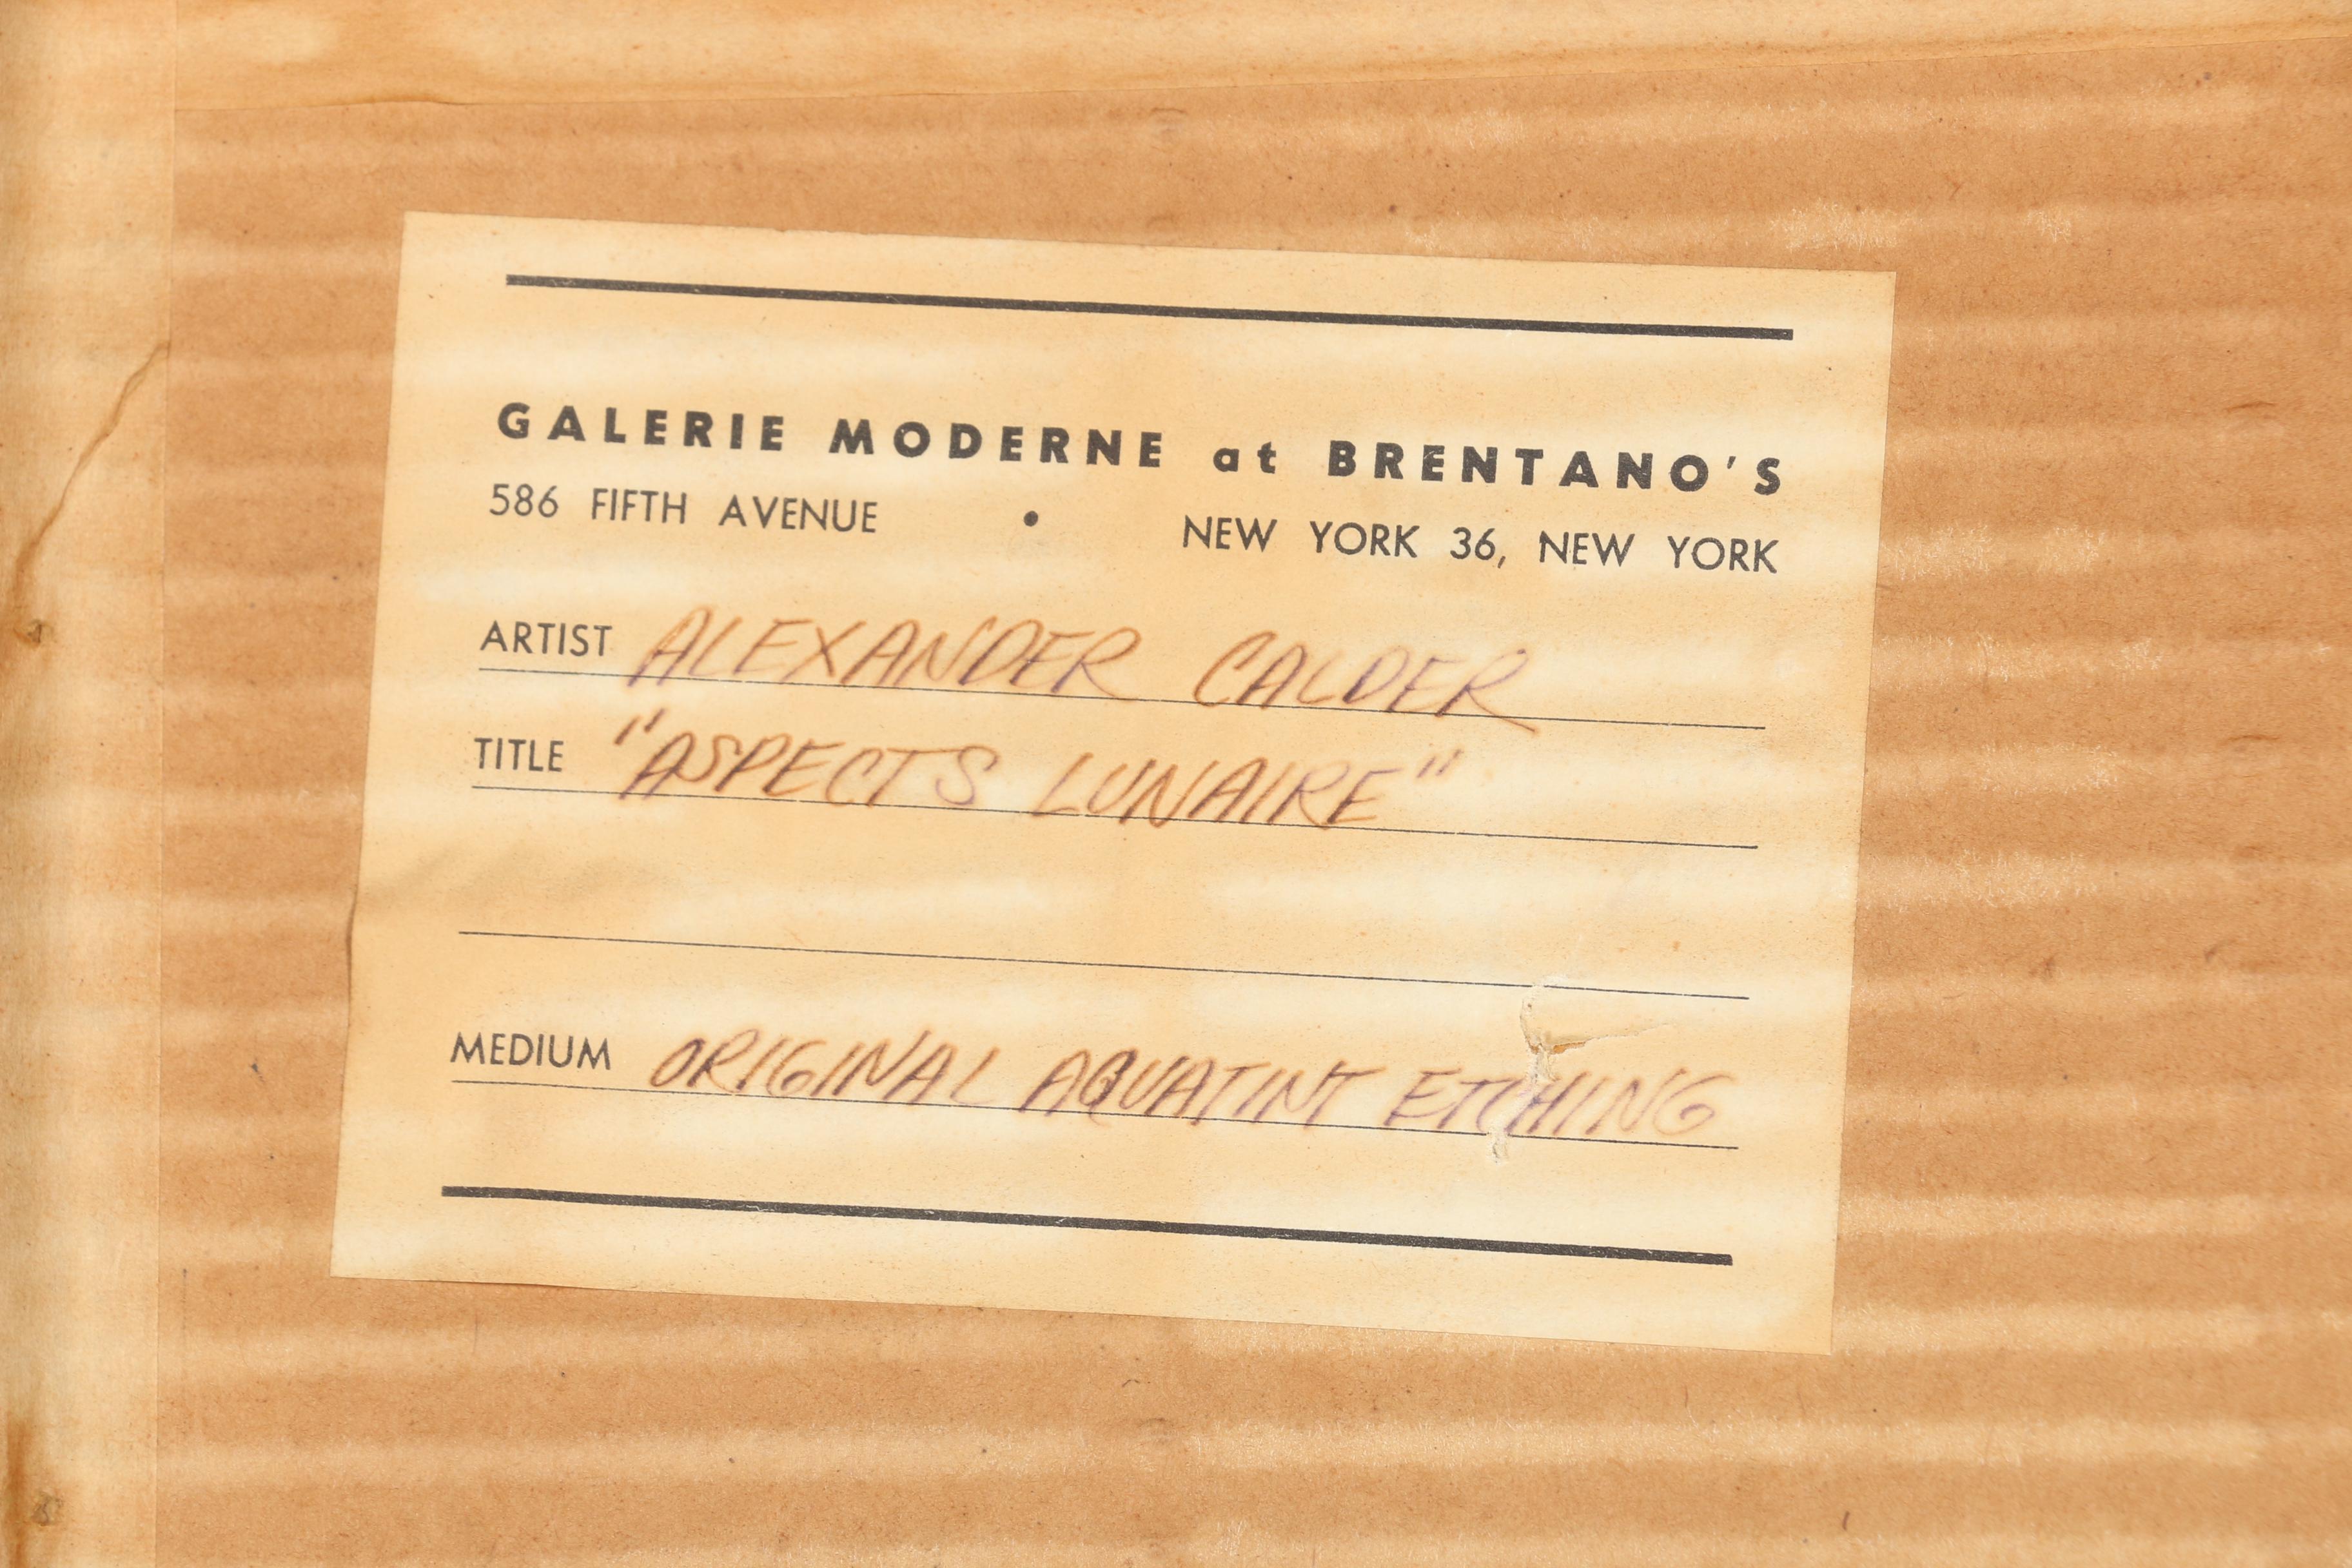 GALERIE MODERNE at BRENTANO'S
586 FIFTH AVENUE • NEW YORK 36, NEW YORK
ARTIST ALEXANDER CALDER
TITLE "ASPECTS LUNAIRE"
MEDIUM ORIGINAL AQUATINT ETCHING